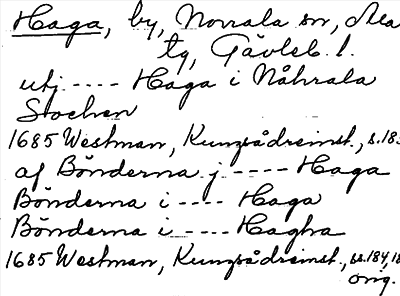 Haga, by, Norrala sn, Ala
tg, Gävleb. l.
utj ---- Haga i Nåhrala
Sochen
1685 Westman, Kungsådreinst., s.183
af Bönderna j ---- Haga
Bönderna i ---- Haga
Bönderna i ---- Hagha
1685 Westman, Kungsådreinst., ss.184,18
orig.